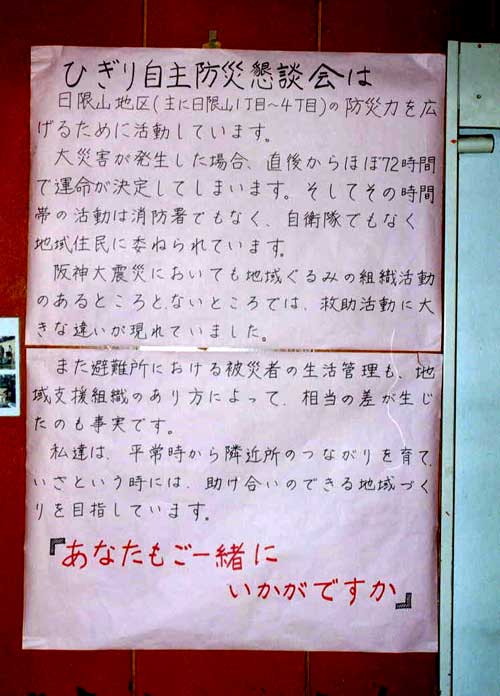 ひぎり自主防災懇談会は
日限山地区(主に日限山1丁目〜4丁目)の防災力を広
げるために活動しています。
大災害が発生した場合、直後からほぼ72時間
で運命が決定してしまいます。そしてその時間
帯の活動は消防署でもなく、自衛隊でもなく
地域住民に委ねられています。
阪神大震災においても地域ぐるみの組織活動
のあるところと、ないところでは、救助活動に大
きな違いが現れていました。
また避難所における被災者の生活管理も、地
域支援組織のあり方によって、相当の差が生じ
たのも事実です。
私達は、平常時から隣近所のつながりを育て、
いざという時には、助け合いのできる地域づく
りを目指しています。
『あなたもご一緒に
いかがですか』